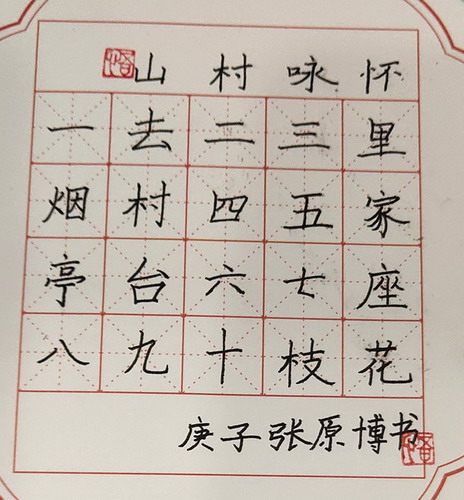 山村咏怀
一去二三里
烟村四五家
亭台六七座
八九十枝花
庚子张原博书